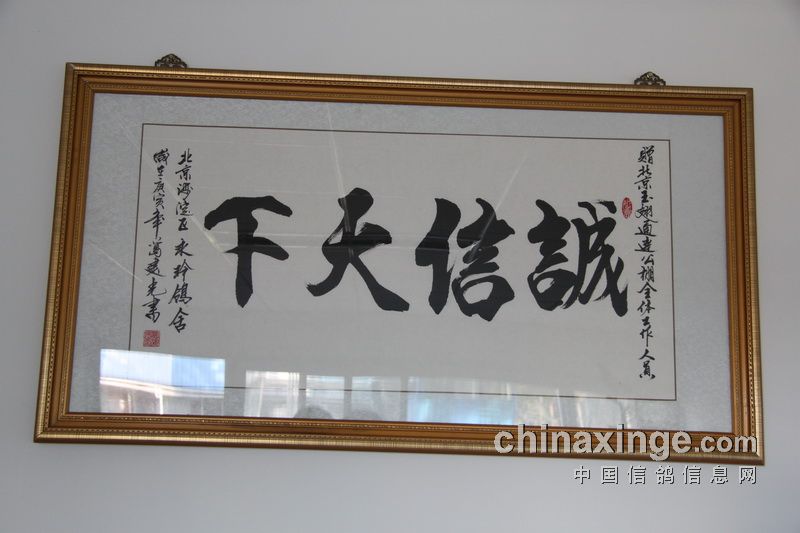 贈北京玉翅通達公棚全体工作人員
誠信天下
北京海淀區永玲鴿舍
歲在庚寅年馮建光書
chinaxinge.com
中国信鸽信息网